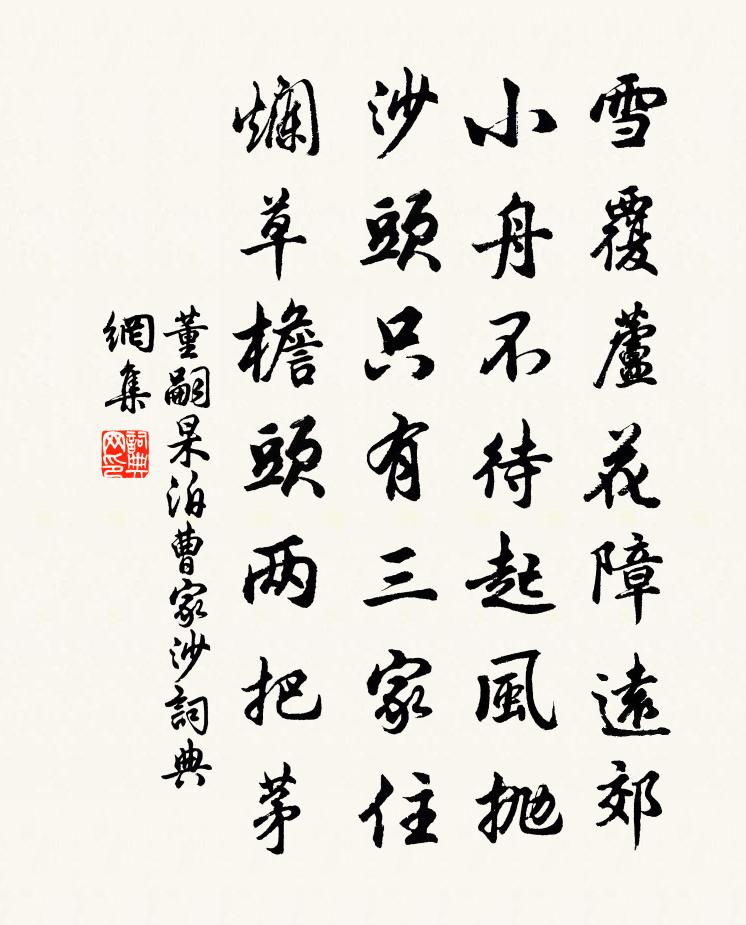 雪覆蘆花障遠郊
小舟不待起風拋
沙頭只有三家住
爛草檐頭两把茅
董嗣杲泊曹家沙詞典
網集
詞典网印